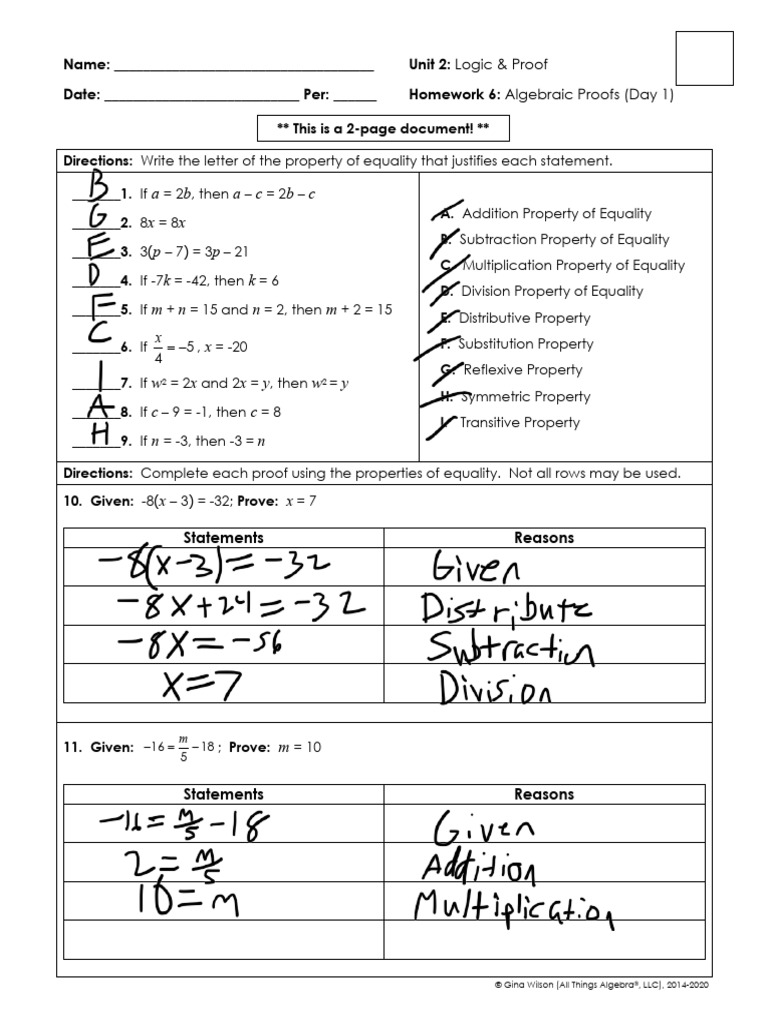 Name: ________________________________ Unit 2: Logic & Proof
Date: ________________________ Per: ______ Homework 6: Algebraic Proofs (Day 1)
** This is a 2-page document! **
Directions: Write the letter of the property of equality that justifies each statement.
B 1. If a = 2b, then a – c = 2b – c
G 2. 8x = 8x
E 3. 3(p – 7) = 3p – 21
D 4. If -7k = -42, then k = 6
F 5. If m + n = 15 and n = 2, then m + 2 = 15
C 6. If x/4 = –5 , x = -20
I 7. If w² = 2x and 2x = y, then w² = y
A 8. If c – 9 = -1, then c = 8
H 9. If n = -3, then -3 = n
A. Addition Property of Equality
B. Subtraction Property of Equality
C. Multiplication Property of Equality
D. Division Property of Equality
E. Distributive Property
F. Substitution Property
G. Reflexive Property
H. Symmetric Property
I. Transitive Property
Directions: Complete each proof using the properties of equality. Not all rows may be used.
10. Given: -8(x – 3) = -32; Prove: x = 7
Statements Reasons
-8(x-3) = -32 Given
-8x+24 = -32 Distribute
-8x = -56 Subtraction
x=7 Division
11. Given: –16 = m/5 – 18 ; Prove: m = 10
Statements Reasons
-16 = m/5 - 18 Given
2 = m/5 Addition
10 = m Multiplication
© Gina Wilson (All Things Algebra®, LLC), 2014-2020